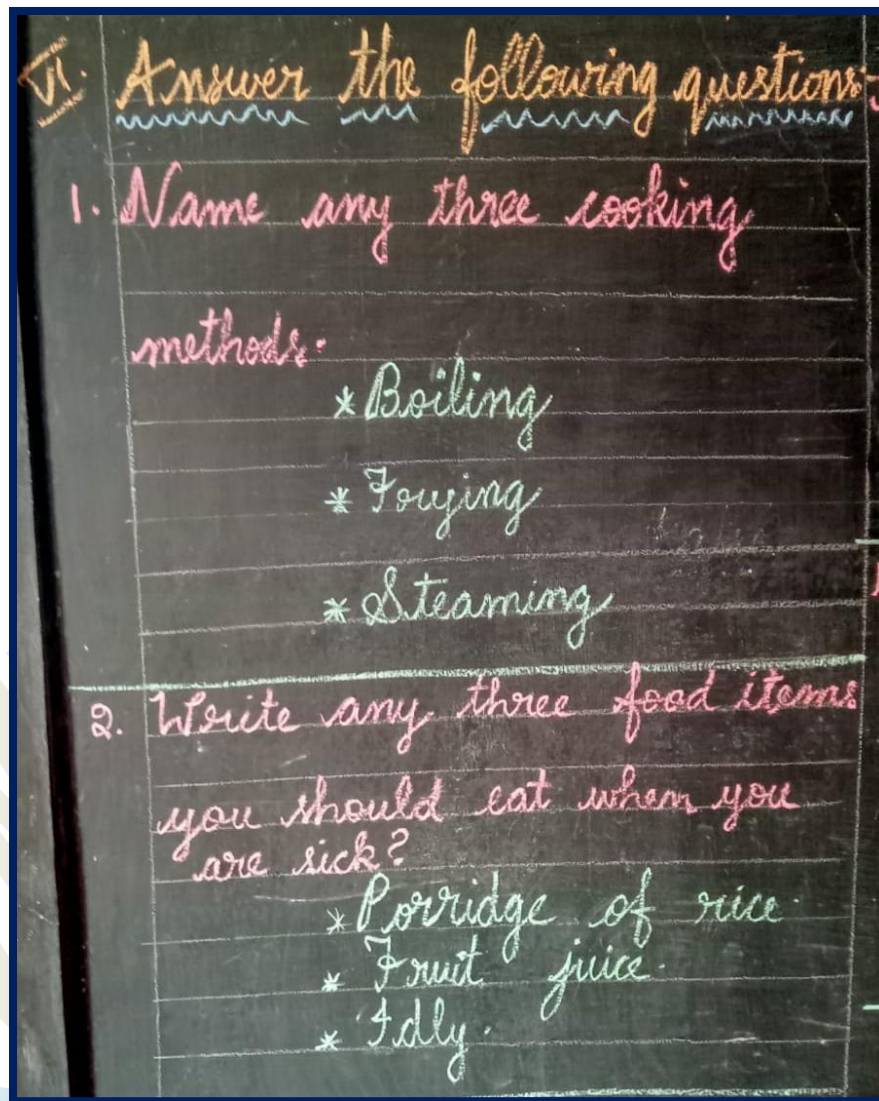 VI. Answer the following questions:-
1. Name any three cooking
methods.
* Boiling
* Frying
* Steaming
2. Write any three food items
you should eat when you
are sick?
* Porridge of rice.
* Fruit juice.
* Idly.